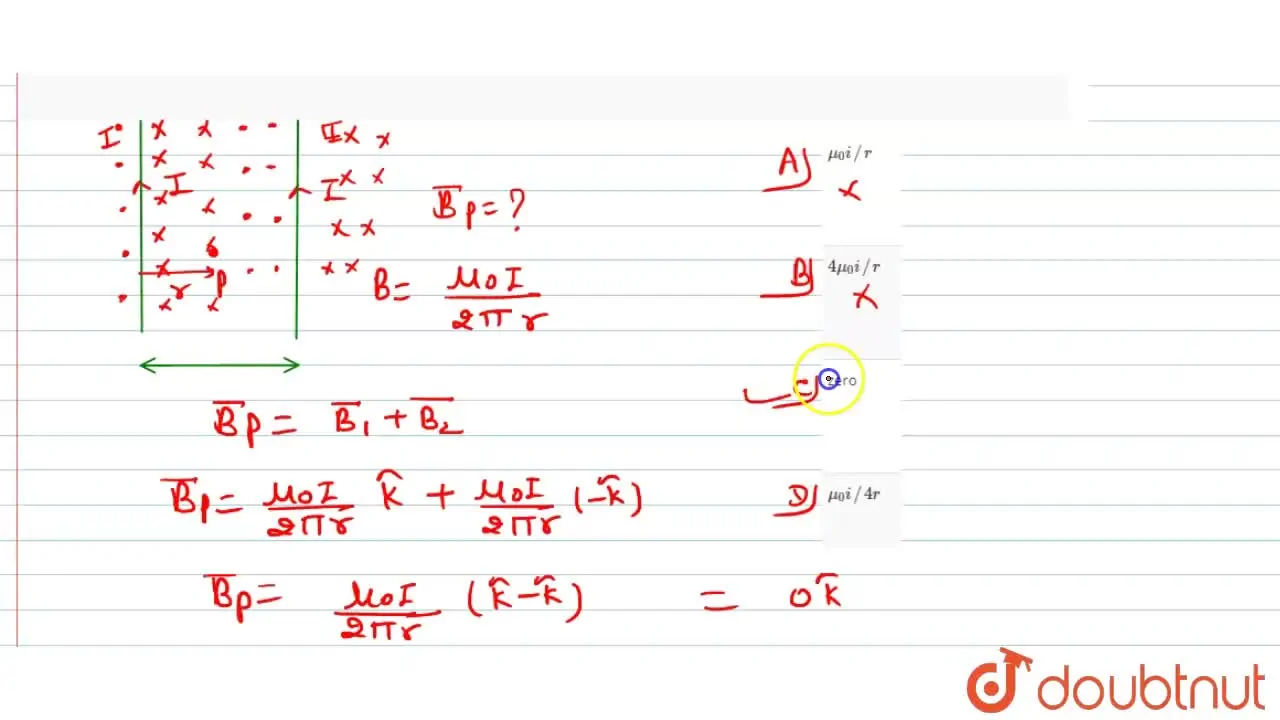 I
I
I
I
r
P
B̅p = ?
B = μ₀I / 2πr
B̅p = B̅₁ + B̅₂
B̅p = μ₀I / 2πr k̂ + μ₀I / 2πr (-k̂)
B̅p = μ₀I / 2πr (k̂ - k̂) = 0k̂
A) μ₀i/r
×
B) 4μ₀i/r
×
zero
D) μ₀i/4r
doubtnut